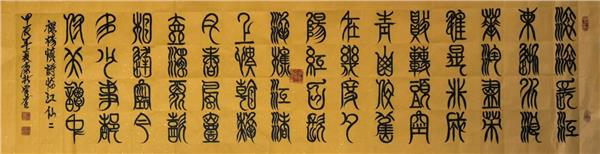 滾滾長江
東逝水浪
花淘盡英
雄是非成
敗轉頭空
青山依舊
在幾度夕
陽紅白髮
漁樵江渚
上慣看秋
月春風壹
壺濁酒喜
相逢古今
多少事都
付笑談中
楊慎詞臨江仙
甲辰年夏